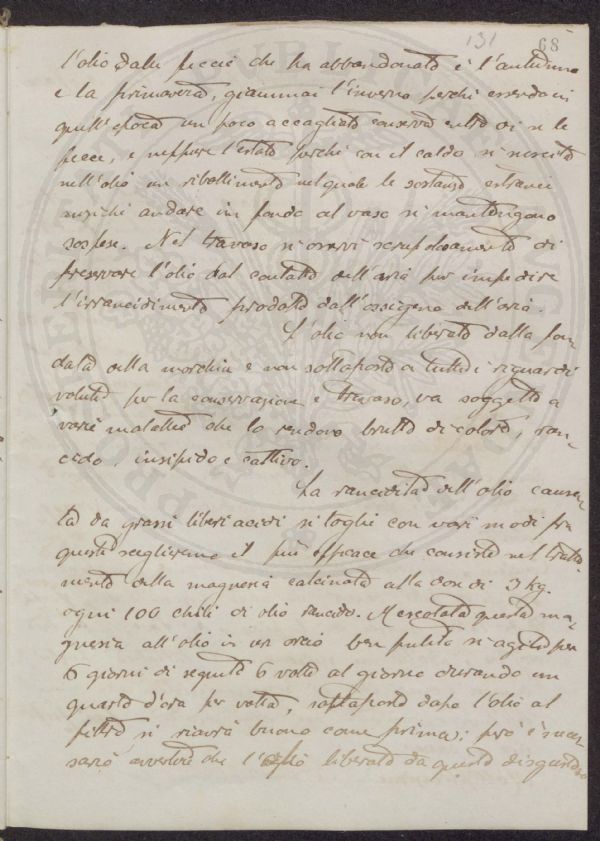 131 68
l'olio dalle feccie che ha abbandonato è l'autunno
e la primavera, giammai l'inverno perchè essendo in
quell'epoca un poco accagliato conserva entro di se le
fecce, e neppure l'estate perchè con il caldo si
nell'olio un ribollimento nel quale le sostanze estranee
anzichè andare in fondo al vaso si mantengono
sospese. Nel travaso si osservi scrupolosamente di
preservare l'olio dal contatto dell'aria per impedire
l'irrancidimento prodotto dall'ossigeno dell'aria.
L'olio non liberato dalla fon-
data della morchia e non sottoposto a tutti i riguardi
voluti per la conservazione e travaso, va soggetto a
varie malattie che lo rendono brutto di colore, ran-
cido, insipido e cattivo.
La rancidità dell'olio causa-
ta da grassi liberi acidi si toglie con vari modi fra
questi sceglieremo il più efficace che consiste nel tratta-
mento della magnesia calcinata alla dose di 3 kg.
ogni 100 chili di olio rancido. Mescolata questa ma-
gnesia all'olio in un orcio ben pulito si agita per
6 giorni di seguito 6 volte al giorno durando un
quarto d'ora per volta, sottoposto dopo l'olio al
filtro si riavrà buono come prima; però è neces-
sario avvertire che l'olio liberato da questo disgustoso